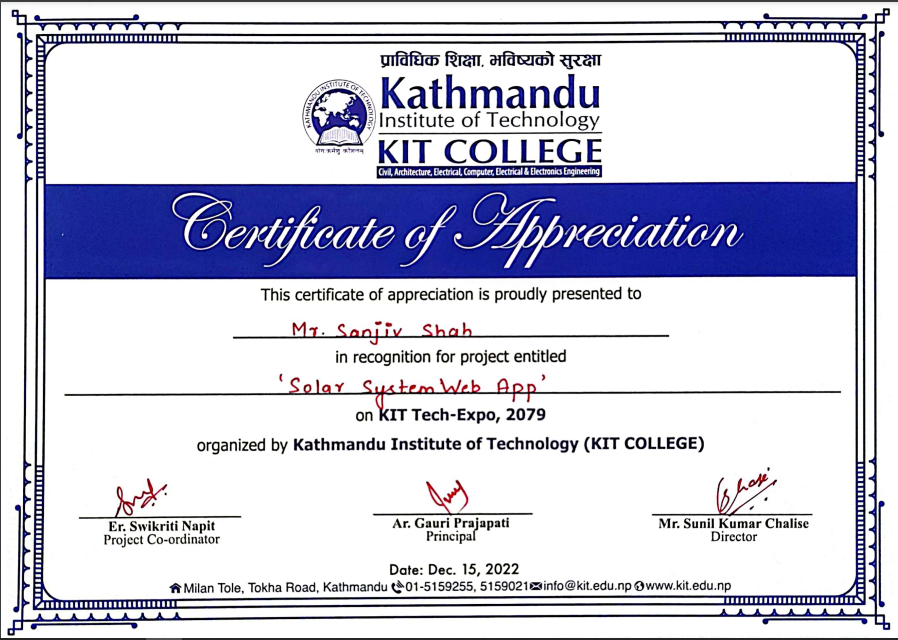 प्राविधिक शिक्षा, भविष्यको सुरक्षा
KATHMANDU INSTITUTE OF TECHNOLOGY
योगः कर्मसु कौशलम्
Kathmandu
Institute of Technology
KIT COLLEGE
Civil, Architecture, Electrical, Computer, Electrical & Electronics Engineering
Certificate of Appreciation
This certificate of appreciation is proudly presented to
Mr. Sanjiv Shah
in recognition for project entitled
'Solar System Web App'
on KIT Tech-Expo, 2079
organized by Kathmandu Institute of Technology (KIT COLLEGE)
Er. Swikriti Napit
Project Co-ordinator
Ar. Gauri Prajapati
Principal
Mr. Sunil Kumar Chalise
Director
Date: Dec. 15, 2022
Milan Tole, Tokha Road, Kathmandu 01-5159255, 5159021 info@kit.edu.np www.kit.edu.np